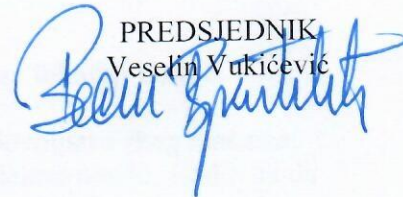 PREDSJEDNIK
Veselin Vukićević